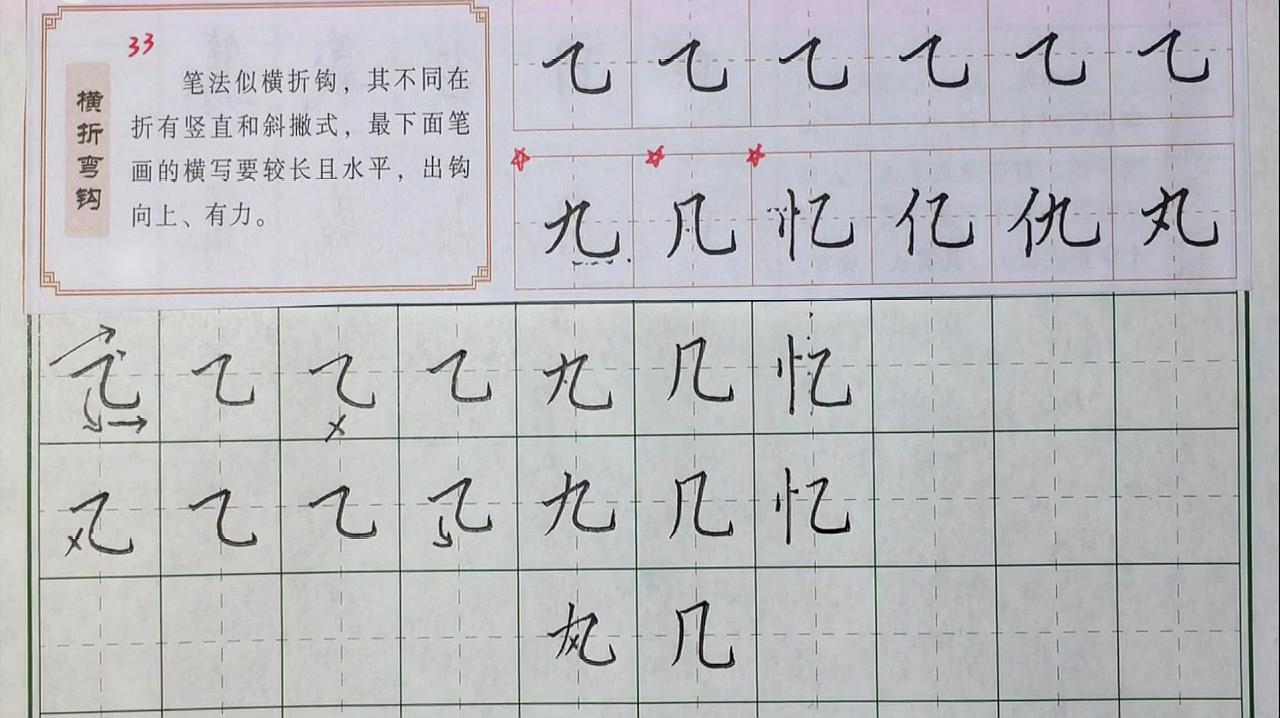 33
横折弯钩
笔法似横折钩，其不同在
折有竖直和斜撇式，最下面笔
画的横写要较长且水平，出钩
向上、有力。
乙 乙 乙 乙 乙 乙
九 几 忆 亿 仇 丸
乙 乙 乙 乙 九 几 忆
乙 乙 乙 乙 九 几 忆
九 几